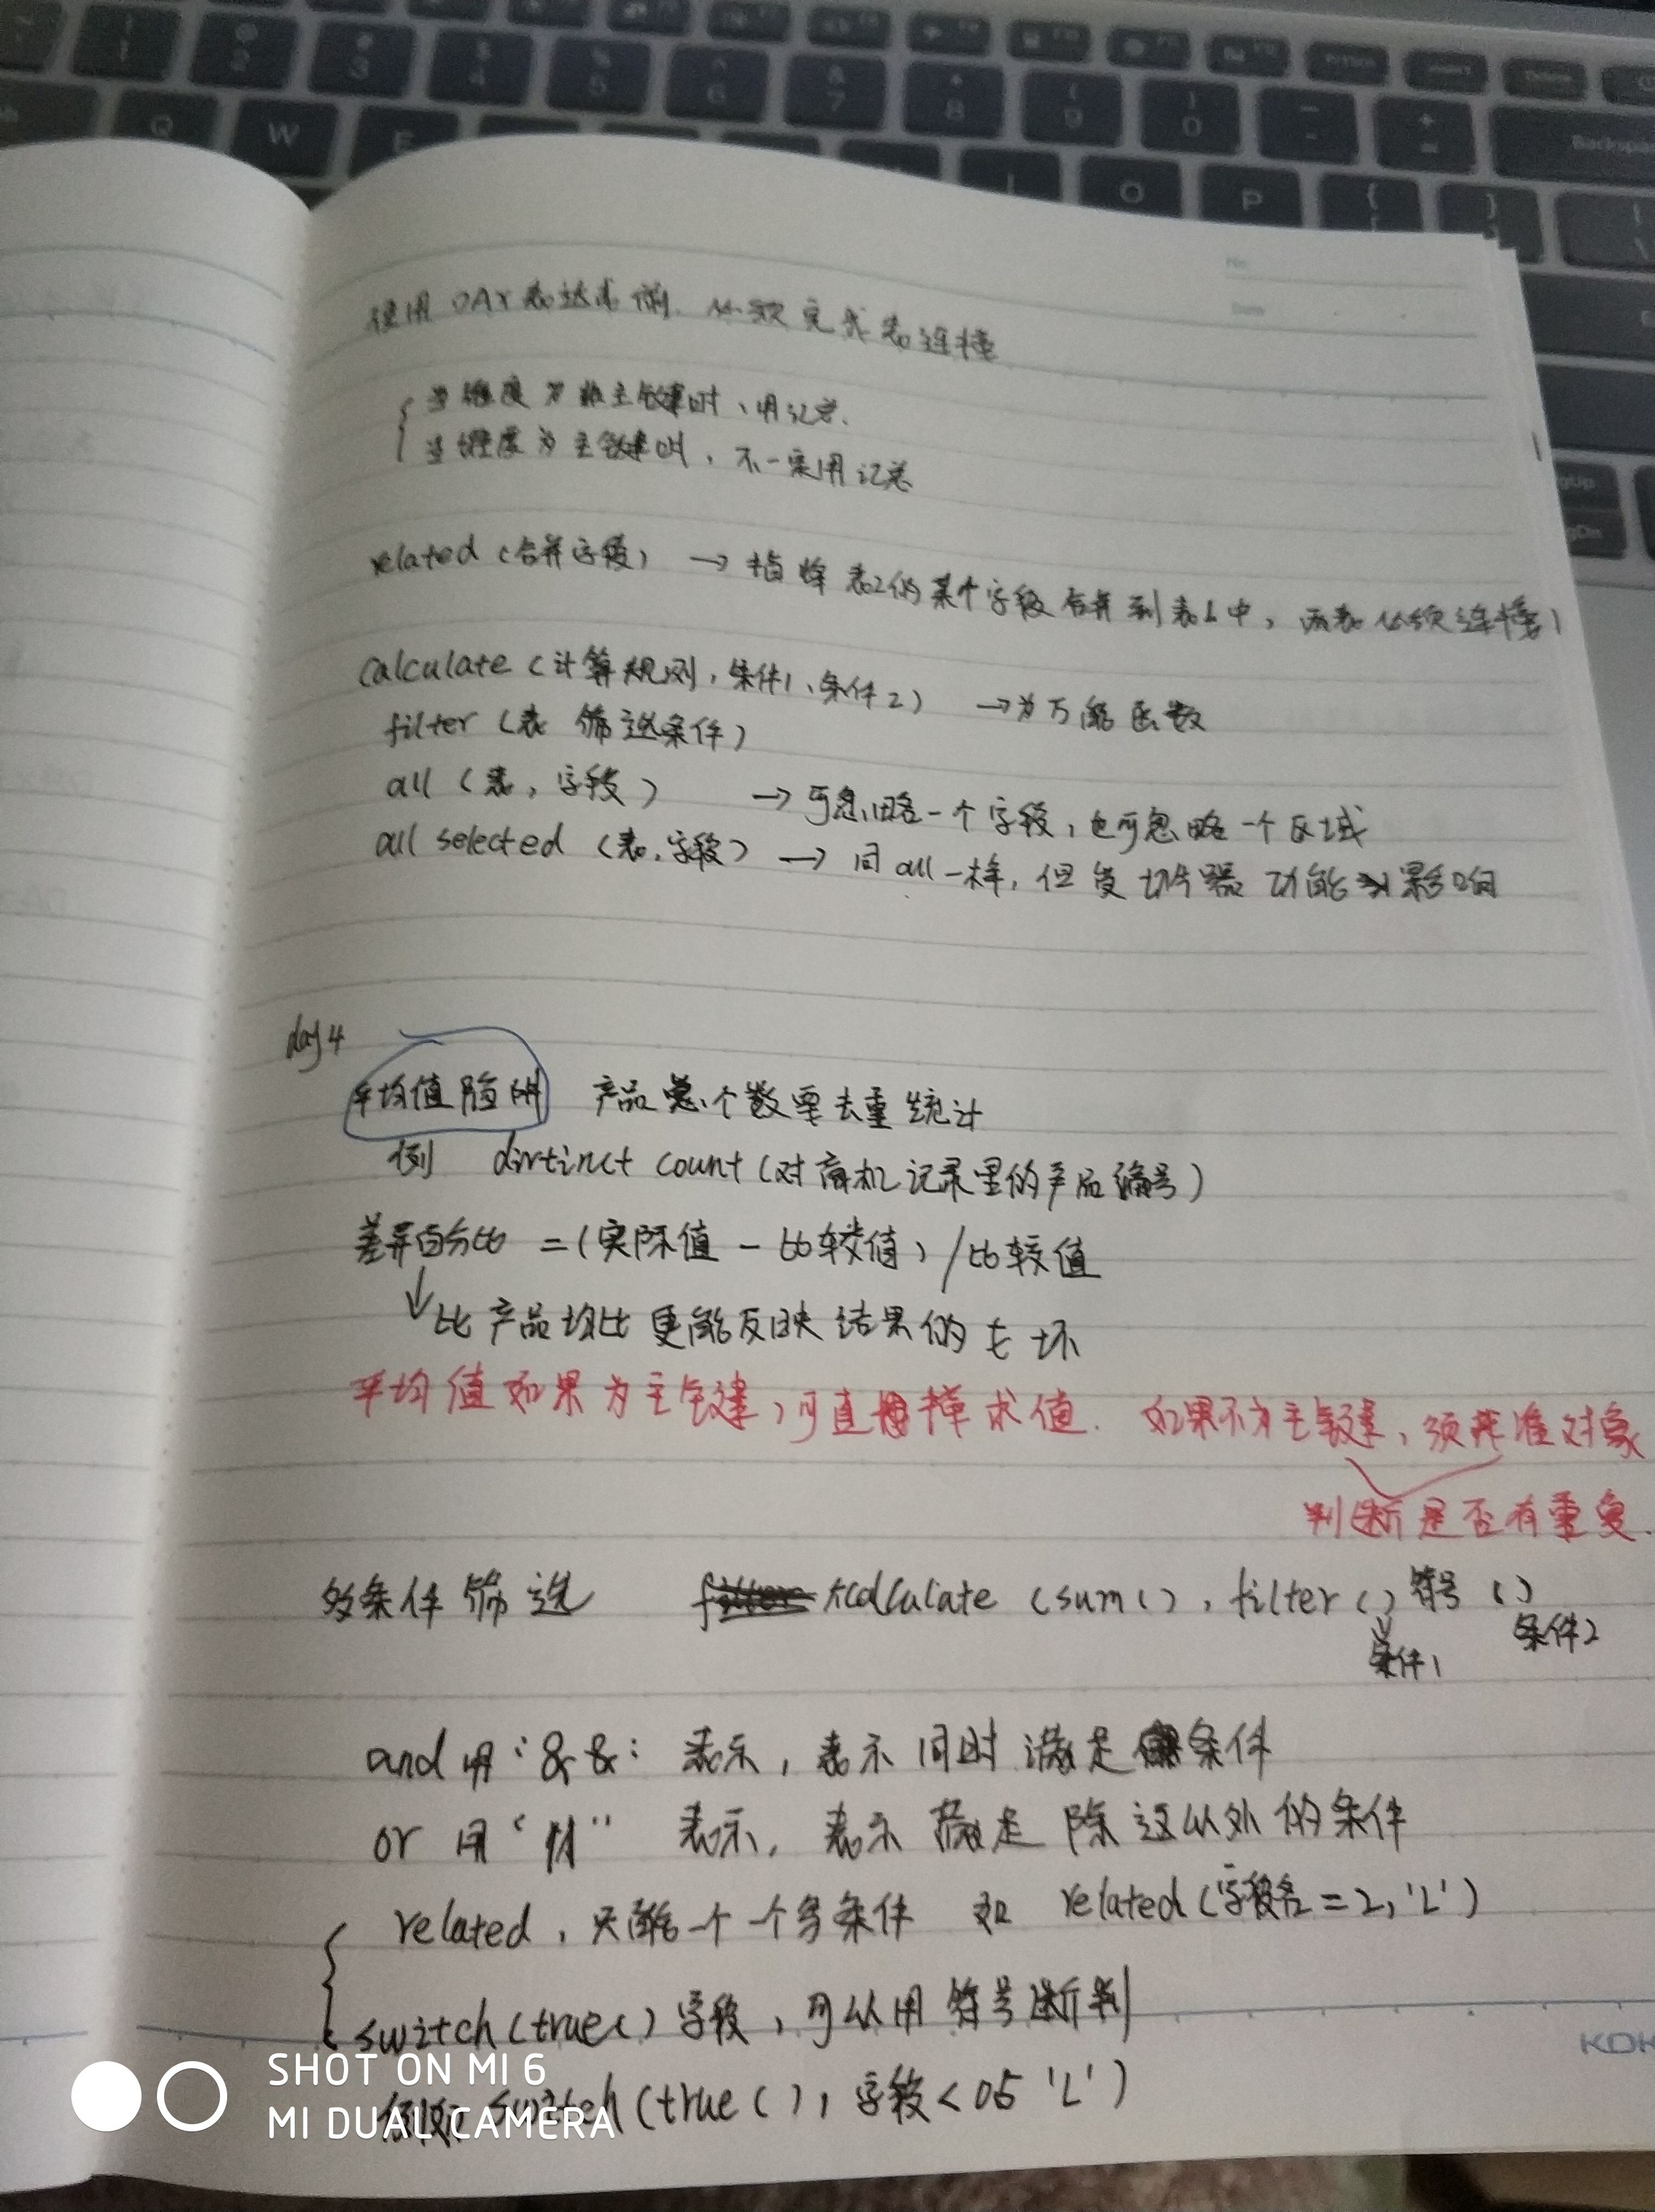 使用DAX表达式前，必须完成表连接
当维度为非主键时，用汇总.
当维度为主键时，不一定用汇总
related（合并字段） → 指将表2的某个字段合并到表1中，两表必须连接）
calculate（计算规则，条件1、条件2） →为万能函数
filter（表 筛选条件）
all（表，字段） → 可忽略一个字段，也可忽略一个区域
all selected（表，字段） → 同all一样，但受切片器功能影响
day4
平均值陷阱 产品总个数要去重统计
例 distinct count（对商机记录里的产品编号）
差异百分比 =（实际值 - 比较值）/比较值
↓比产品均比更能反映结果的好坏
平均值如果为主键，可直接求值. 如果不为主键，须找准对象
判断是否有重复.
多条件筛选 calculate（sum（），filter（）符号（）
条件1 条件2
and 用：&&： 表示，表示同时满足条件
or 用“||” 表示，表示满足除这以外的条件
related，只能一个一个写条件 如 related（字段名=2，'L'）
switch（true（）字段，可以用符号断判
例如 switch（true（），字段<05 'L'）
SHOT ON MI 6
MI DUAL CAMERA